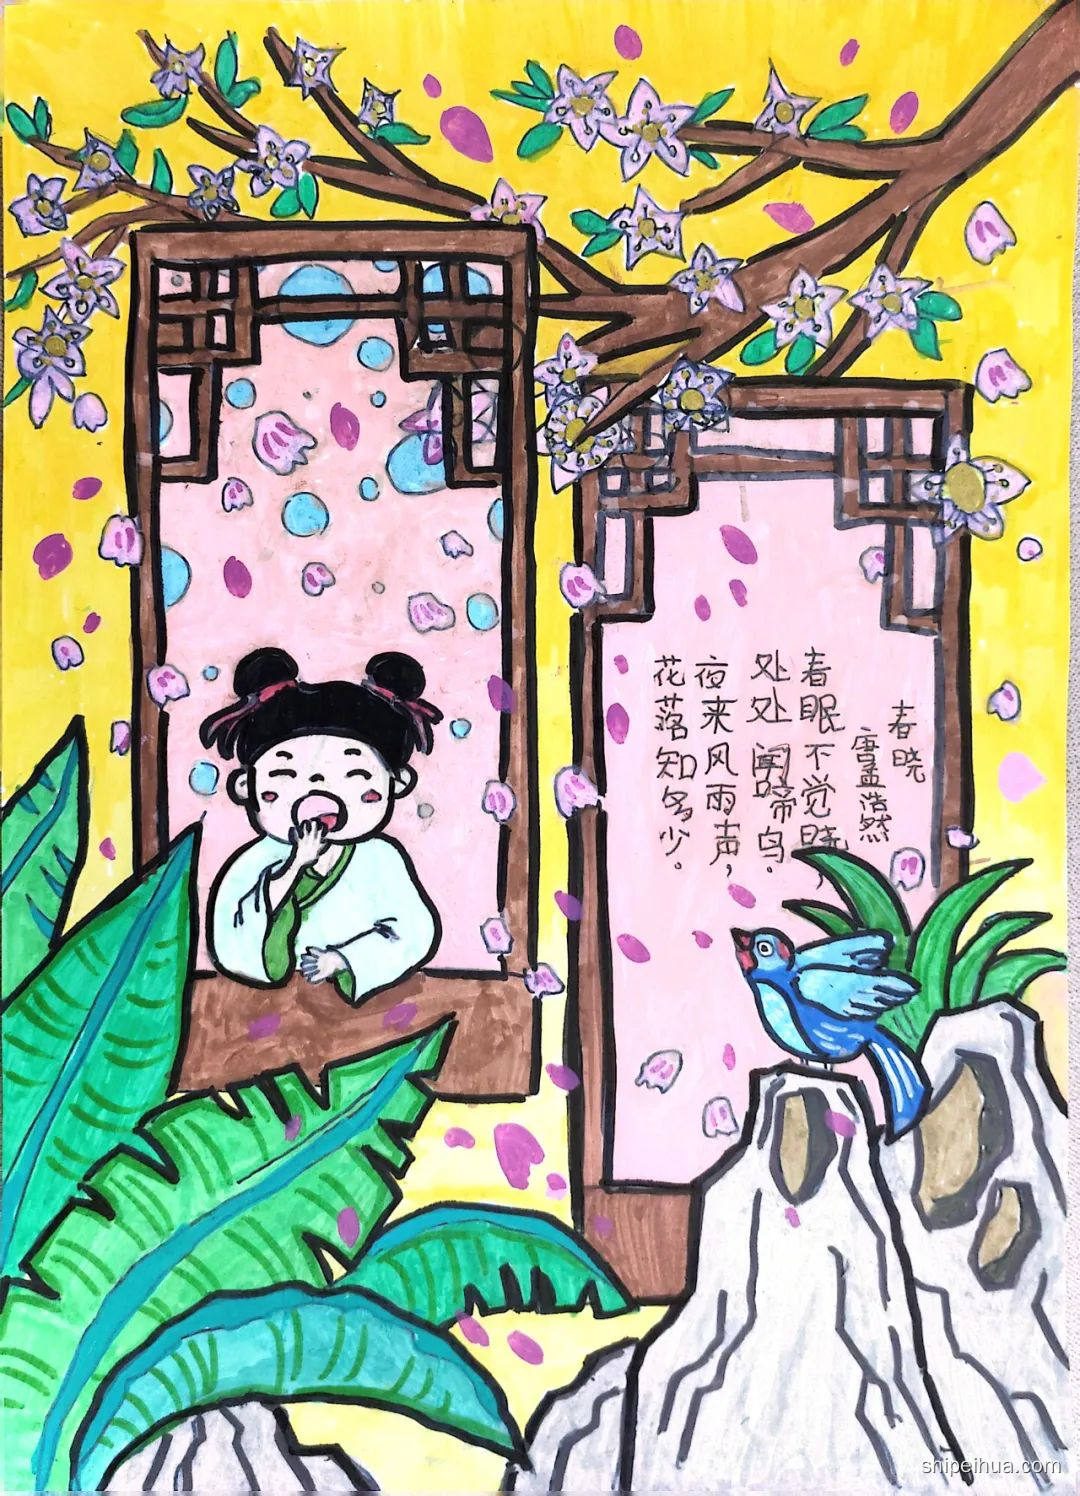 春晓
唐孟浩然
春眠不觉晓，
处处闻啼鸟。
夜来风雨声，
花落知多少。
shipeihua.com